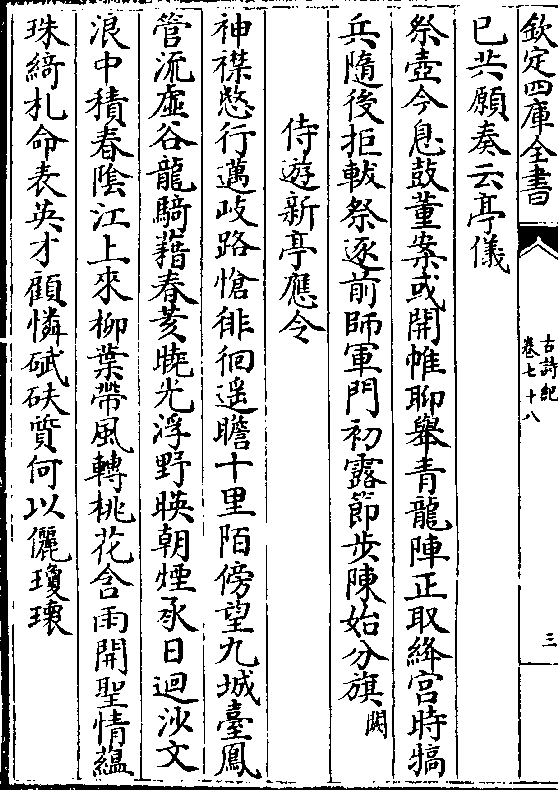 欽定四庫全書
古詩紀
卷七十八
三
已共願奏云亭儀
祭壺今息鼓董案或開帷聊舉青龍陣正取絳宮時犒
兵隨後拒軷祭逐前師軍門初露節步陳始分旗闕
侍遊新亭應令
神襟愍行邁岐路愴徘徊遥瞻十里陌傍望九城臺鳳
管流虚谷龍騎藉春荄曉光浮野暎朝煙承日迴沙文
浪中積春陰江上來柳葉帶風轉桃花含雨開聖情藴
珠綺札命表英才顧憐碔砆質何以儷瓊瓌